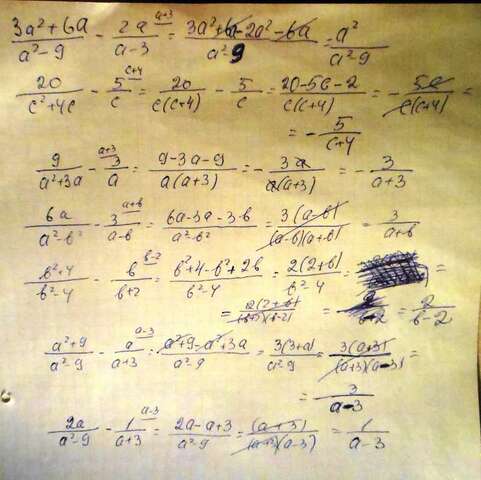 (3a²+6a)/(a²-9) - 2a/(a-3) ^(a+3) = (3a²+6a-2a²-6a)/(a²-9) = a²/(a²-9)
20/(c²+4c) - 5/c ^(c+4) = 20/(c(c+4)) - 5/c = (20-5c-2)/(c(c+4)) = - 5c/(c(c+4)) =
= - 5/(c+4)
9/(a²+3a) - 3/a ^(a+3) = (9-3a-9)/(a(a+3)) = - 3a/(a(a+3)) = - 3/(a+3)
6a/(a²-b²) - 3/(a-b) ^(a+b) = (6a-3a-3b)/(a²-b²) = 3(a-b)/((a-b)(a+b)) = 3/(a+b)
(b²+4)/(b²-4) - b/(b+2) ^(b-2) = (b²+4-b²+2b)/(b²-4) = 2(2+b)/(b²-4) = =
= 2(2+b)/((b+2)(b-2)) = 2/(b+2) = 2/(b-2)
(a²+9)/(a²-9) - a/(a+3) ^(a-3) = (a²+9-a²+3a)/(a²-9) = 3(3+a)/(a²-9) = 3(a+3)/((a+3)(a-3)) =
= 3/(a-3)
2a/(a²-9) - 1/(a+3) ^(a-3) = (2a-a+3)/(a²-9) = (a+3)/((a+3)(a-3)) = 1/(a-3)